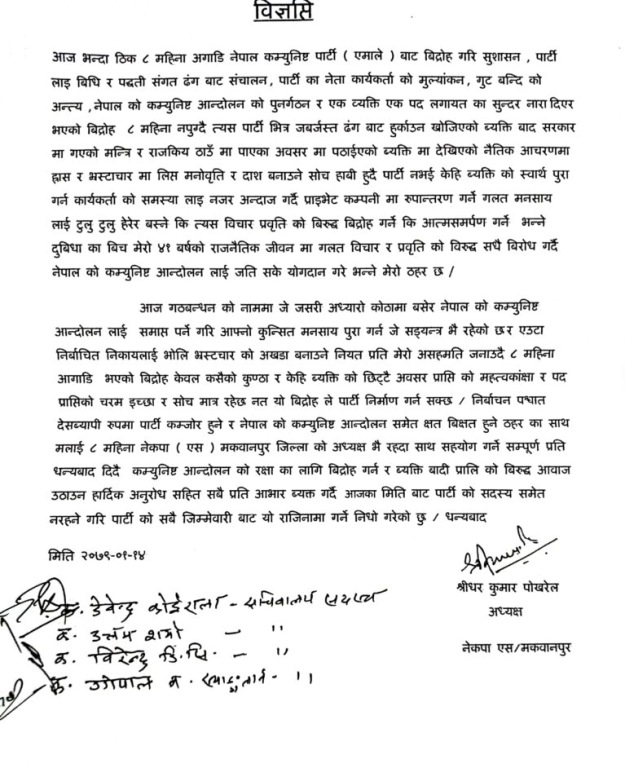 विज्ञप्ति
आज भन्दा ठिक ८ महिना अगाडि नेपाल कम्युनिष्ट पार्टी ( एमाले ) बाट बिद्रोह गरि सुशासन , पार्टी
लाइ बिधि र पद्धती संगत ढंग बाट संचालन, पार्टी का नेता कार्यकर्ता को मुल्यांकन, गुट बन्दि को
अन्त्य ,नेपाल को कम्युनिष्ट आन्दोलन को पुनर्गठन र एक ब्यक्ति एक पद लगायत का सुन्दर नारा दिएर
भएको बिद्रोह ८ महिना नपुग्दै त्यस पार्टी भित्र जबर्जस्त ढंग बाट हुर्काउन खोजिएको ब्यक्ति बाद सरकार
मा गएको मन्त्रि र राजकिय ठाउँ मा पाएका अवसर मा पठाईएको ब्यक्ति मा देखिएको नैतिक आचरणमा
ह्रास र भस्टाचार मा लिप्त मनोवृति र दाश बनाउने सोच हाबी हुदै पार्टी नभई केहि ब्यक्ति को स्वार्थ पुरा
गर्न कार्यकर्ता को समस्या लाइ नजर अन्दाज गर्दै प्राइभेट कम्पनी मा रुपान्तरण गर्ने गलत मनसाय
लाई टुलु टुलु हेरेर बस्ने कि त्यस विचार प्रवृति को बिरुद्ध बिद्रोह गर्ने कि आत्मसमर्पण गर्ने भन्ने
दुबिधा का बिच मेरो ४१ बर्षको राजनैतिक जीवन मा गलत विचार र प्रवृति को विरुद्ध सधै बिरोध गर्दै
नेपाल को कम्युनिष्ट आन्दोलन लाई जति सके योगदान गरे भन्ने मेरो ठहर छ /
आज गठबन्धन को नाममा जे जसरी अध्यारो कोठामा बसेर नेपाल को कम्युनिष्ट
आन्दोलन लाई समाप्त पर्ने गरि आफ्नो कुन्सित मनसाय पुरा गर्न जे सड्यन्त्र भै रहेको छ र एउटा
निर्बाचित निकायलाई भोलि भस्टचार को अखडा बनाउने नियत प्रति मेरो असहमति जनाउदै ८ महिना
आगाडि भएको बिद्रोह केवल कसैको कुण्ठा र केहि ब्यक्ति को छिट्टै अवसर प्राप्ति को महत्वकांक्षा र पद
प्राप्तिको चरम इच्छा र सोच मात्र रहेछ नत यो बिद्रोह ले पार्टी निर्माण गर्न सक्छ / निर्बाचन पश्चात
देसब्यापी रुपमा पार्टी कम्जोर हुने र नेपाल को कम्युनिष्ट आन्दोलन समेत क्षत बिक्षत हुने ठहर का साथ
मलाई ८ महिना नेकपा ( एस ) मकवानपुर जिल्ला को अध्यक्ष भै रहदा साथ सहयोग गर्ने सम्पूर्ण प्रति
धन्यबाद दिदै कम्युनिष्ट आन्दोलन को रक्षा का लागि बिद्रोह गर्न र ब्यक्ति बादी प्रालि को बिरुद्ध आवाज
उठाउन हार्दिक अनुरोध सहित सबै प्रति आभार ब्यक्त गर्दै आजका मिति बाट पार्टी को सदस्य समेत
नरहने गरि पार्टी को सबै जिम्मेवारी बाट यो राजिनामा गर्ने निधो गरेको छु / धन्यबाद
मिति २०७९-०१-१४
श्रीधर कुमार पोखरेल
अध्यक्ष
नेकपा एस/मकवानपुर
क. देवेन्द्र कोईराला - सचिवालय सदस्य
क. उत्तम शर्मा - "
क. विरेन्द्र डि.सि. - "
क.